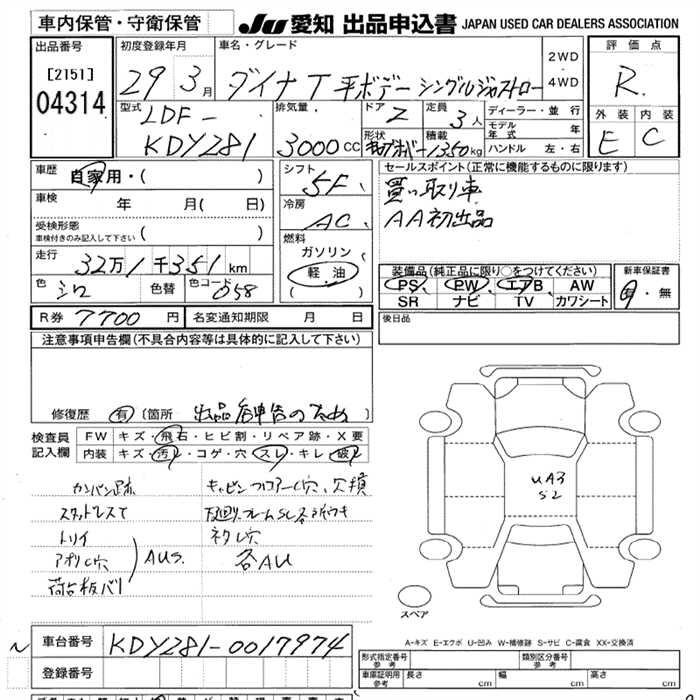 車内保管・守衛保管
JU 愛知 出品申込書 JAPAN USED CAR DEALERS ASSOCIATION
出品番号
[2151]
04314
初度登録年月
29 3月
車名・グレード
ダイナT 平ボデー シングルジャストロー
2WD・4WD
評価点
R
外装 内装
E C
型式
LDF-
KDY281
排気量
3000cc
ドア
2
定員
3人
形状
積載
1350kg
ディーラー・並行
モデル年式 年
ハンドル 左・右
車歴
自家用・( )
車検
年 月( 日)
受検形態
車検付きのみ記入して下さい ( )
走行
32万1千351km
色
シロ
色替
色コード
058
シフト
5F
冷房
AC
燃料
ガソリン
軽油
( )
セールスポイント(正常に機能するものに限ります)
買い取り車
AA初出品
装備品(純正品に限り○をつけてください)
PS PW エアB AW
SR ナビ TV カワシート
新車保証書
有・無
R券 7700円
名変通知期限 月 日
後日品
注意事項申告欄(不具合内容等は具体的に記入して下さい)
修復歴 有 〔箇所 出品者申告のため〕
検査員記入欄
FW キズ・飛石・ヒビ割・リペア跡・X要
内装 キズ・汚レ・コゲ・穴・スレ・キレ・破レ
カンバン跡
スタッドレスT
トリイ
アオリC穴
荷台板バリ
AUS.
キャビンフロアーC穴、欠損
下回リ、フレームSC各所ウキ
ネタ穴
各AU
UA3
S2
スペア
A-キズ E-エクボ U-凹み W-補修跡 S-サビ C-腐食 XX-交換済
車台番号 KDY281-0017974
登録番号
形式指定番号 参考
類別区分番号 参考
車庫証明用 参考
長さ cm 幅 cm 高さ cm